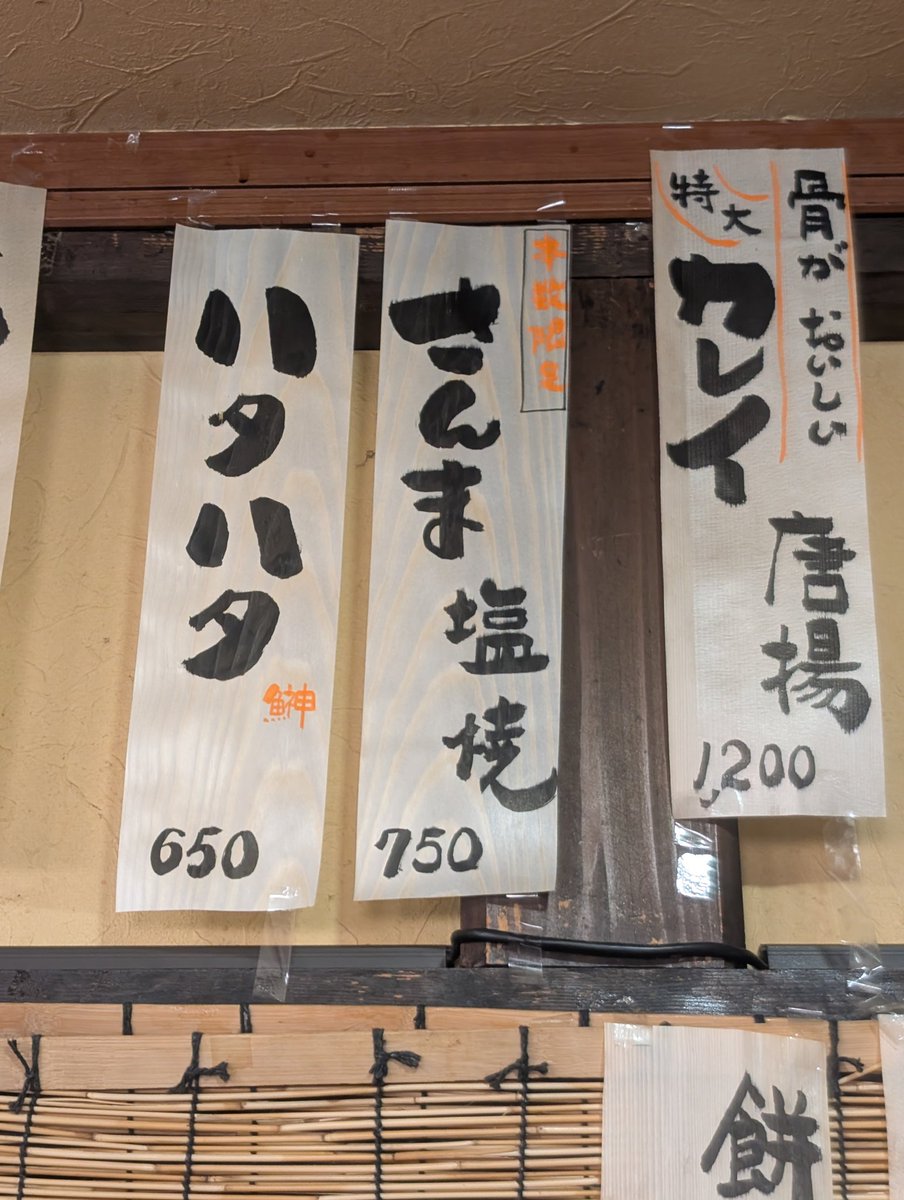 骨がおいしい
特大
カレイ
唐揚
1,200
本数限定
さんま
塩焼
750
ハタハタ
鰰
650
餅